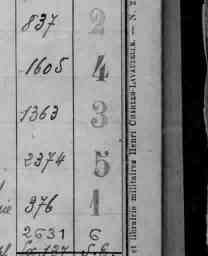 837 2
1605 4
1363 3
2374 5
976 1
2631 6
et librairie militaires Henri CHARLES-LAVAUZELLE. — N.